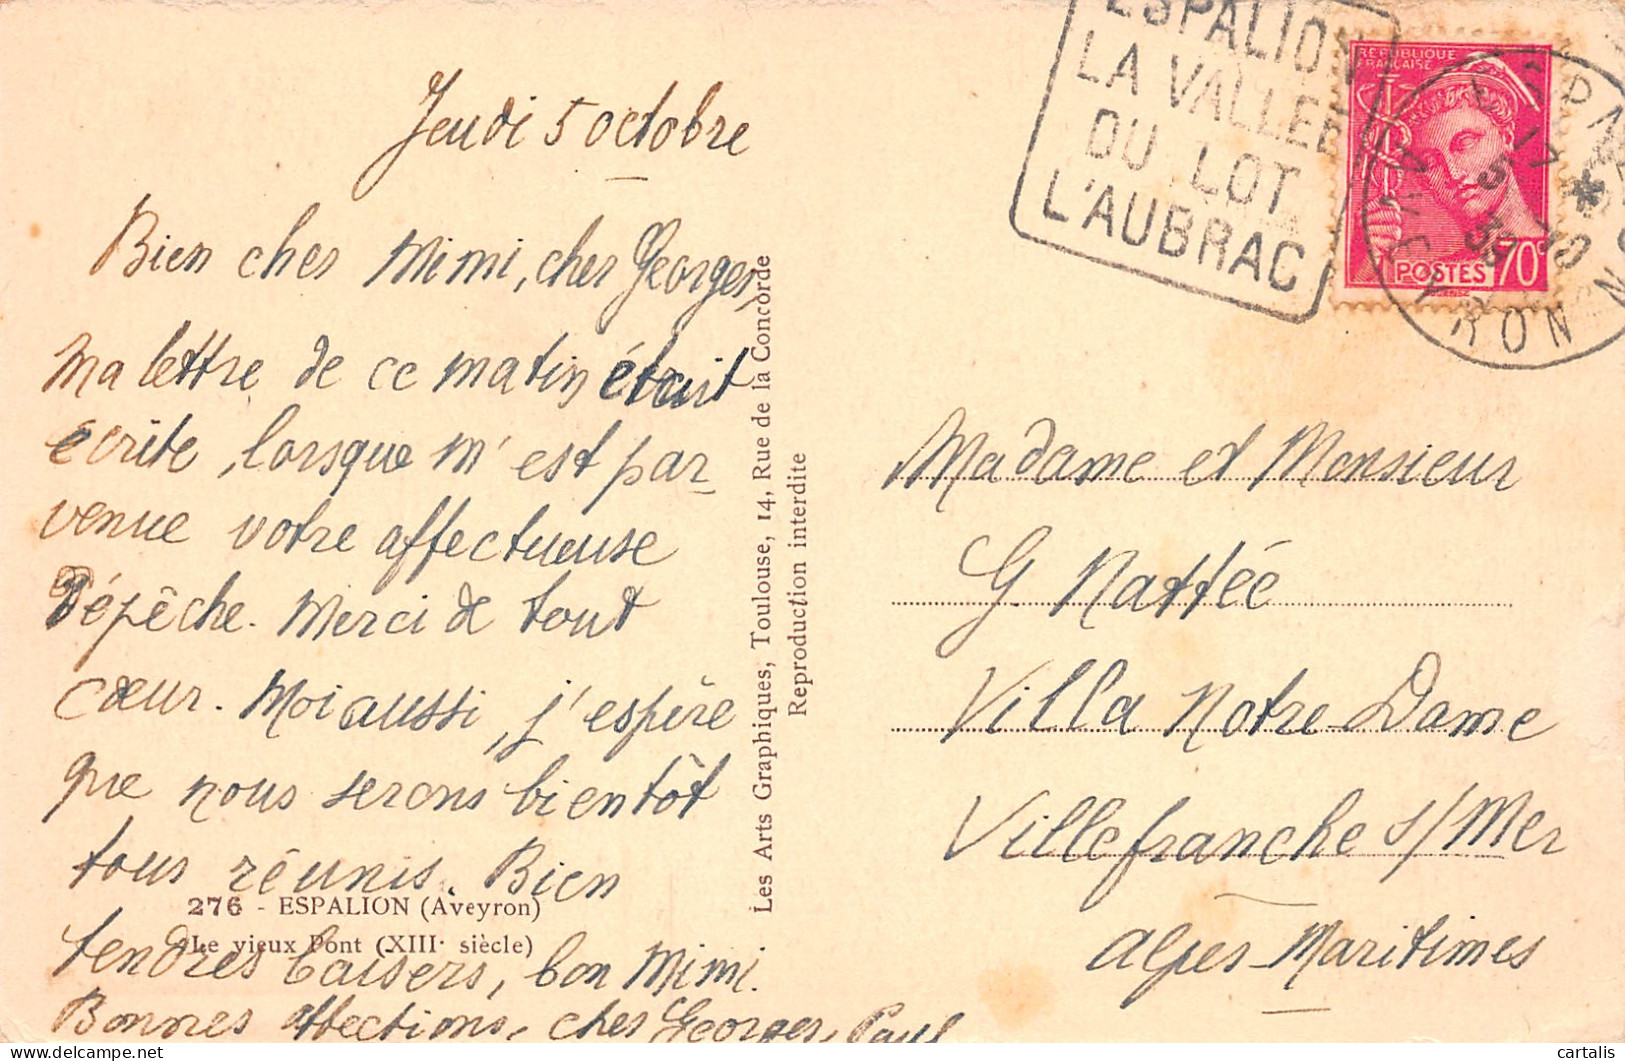 Jeudi 5 octobre
Bien cher Mimi, cher Georges,
Ma lettre de ce matin était
écrite, lorsque m'est par-
venue votre affectueuse
dépêche. Merci de tout
cœur. Moi aussi, j'espère
que nous serons bientôt
tous réunis. Bien
tendres baisers, bon Mimi.
Bonnes affections, cher Georges, Paul
276 - ESPALION (Aveyron)
Le vieux Pont (XIIIe siècle)
Les Arts Graphiques, Toulouse, 14, Rue de la Concorde
Reproduction interdite
ESPALION
LA VALLEE
DU LOT
L'AUBRAC
REPUBLIQUE
FRANÇAISE
POSTES 70c
ESPALION
17 *
5 10
39
AVEYRON
Madame et Monsieur
G Nattéé
Villa Notre-Dame
Villefranche s/Mer
Alpes-Maritimes
cartalis